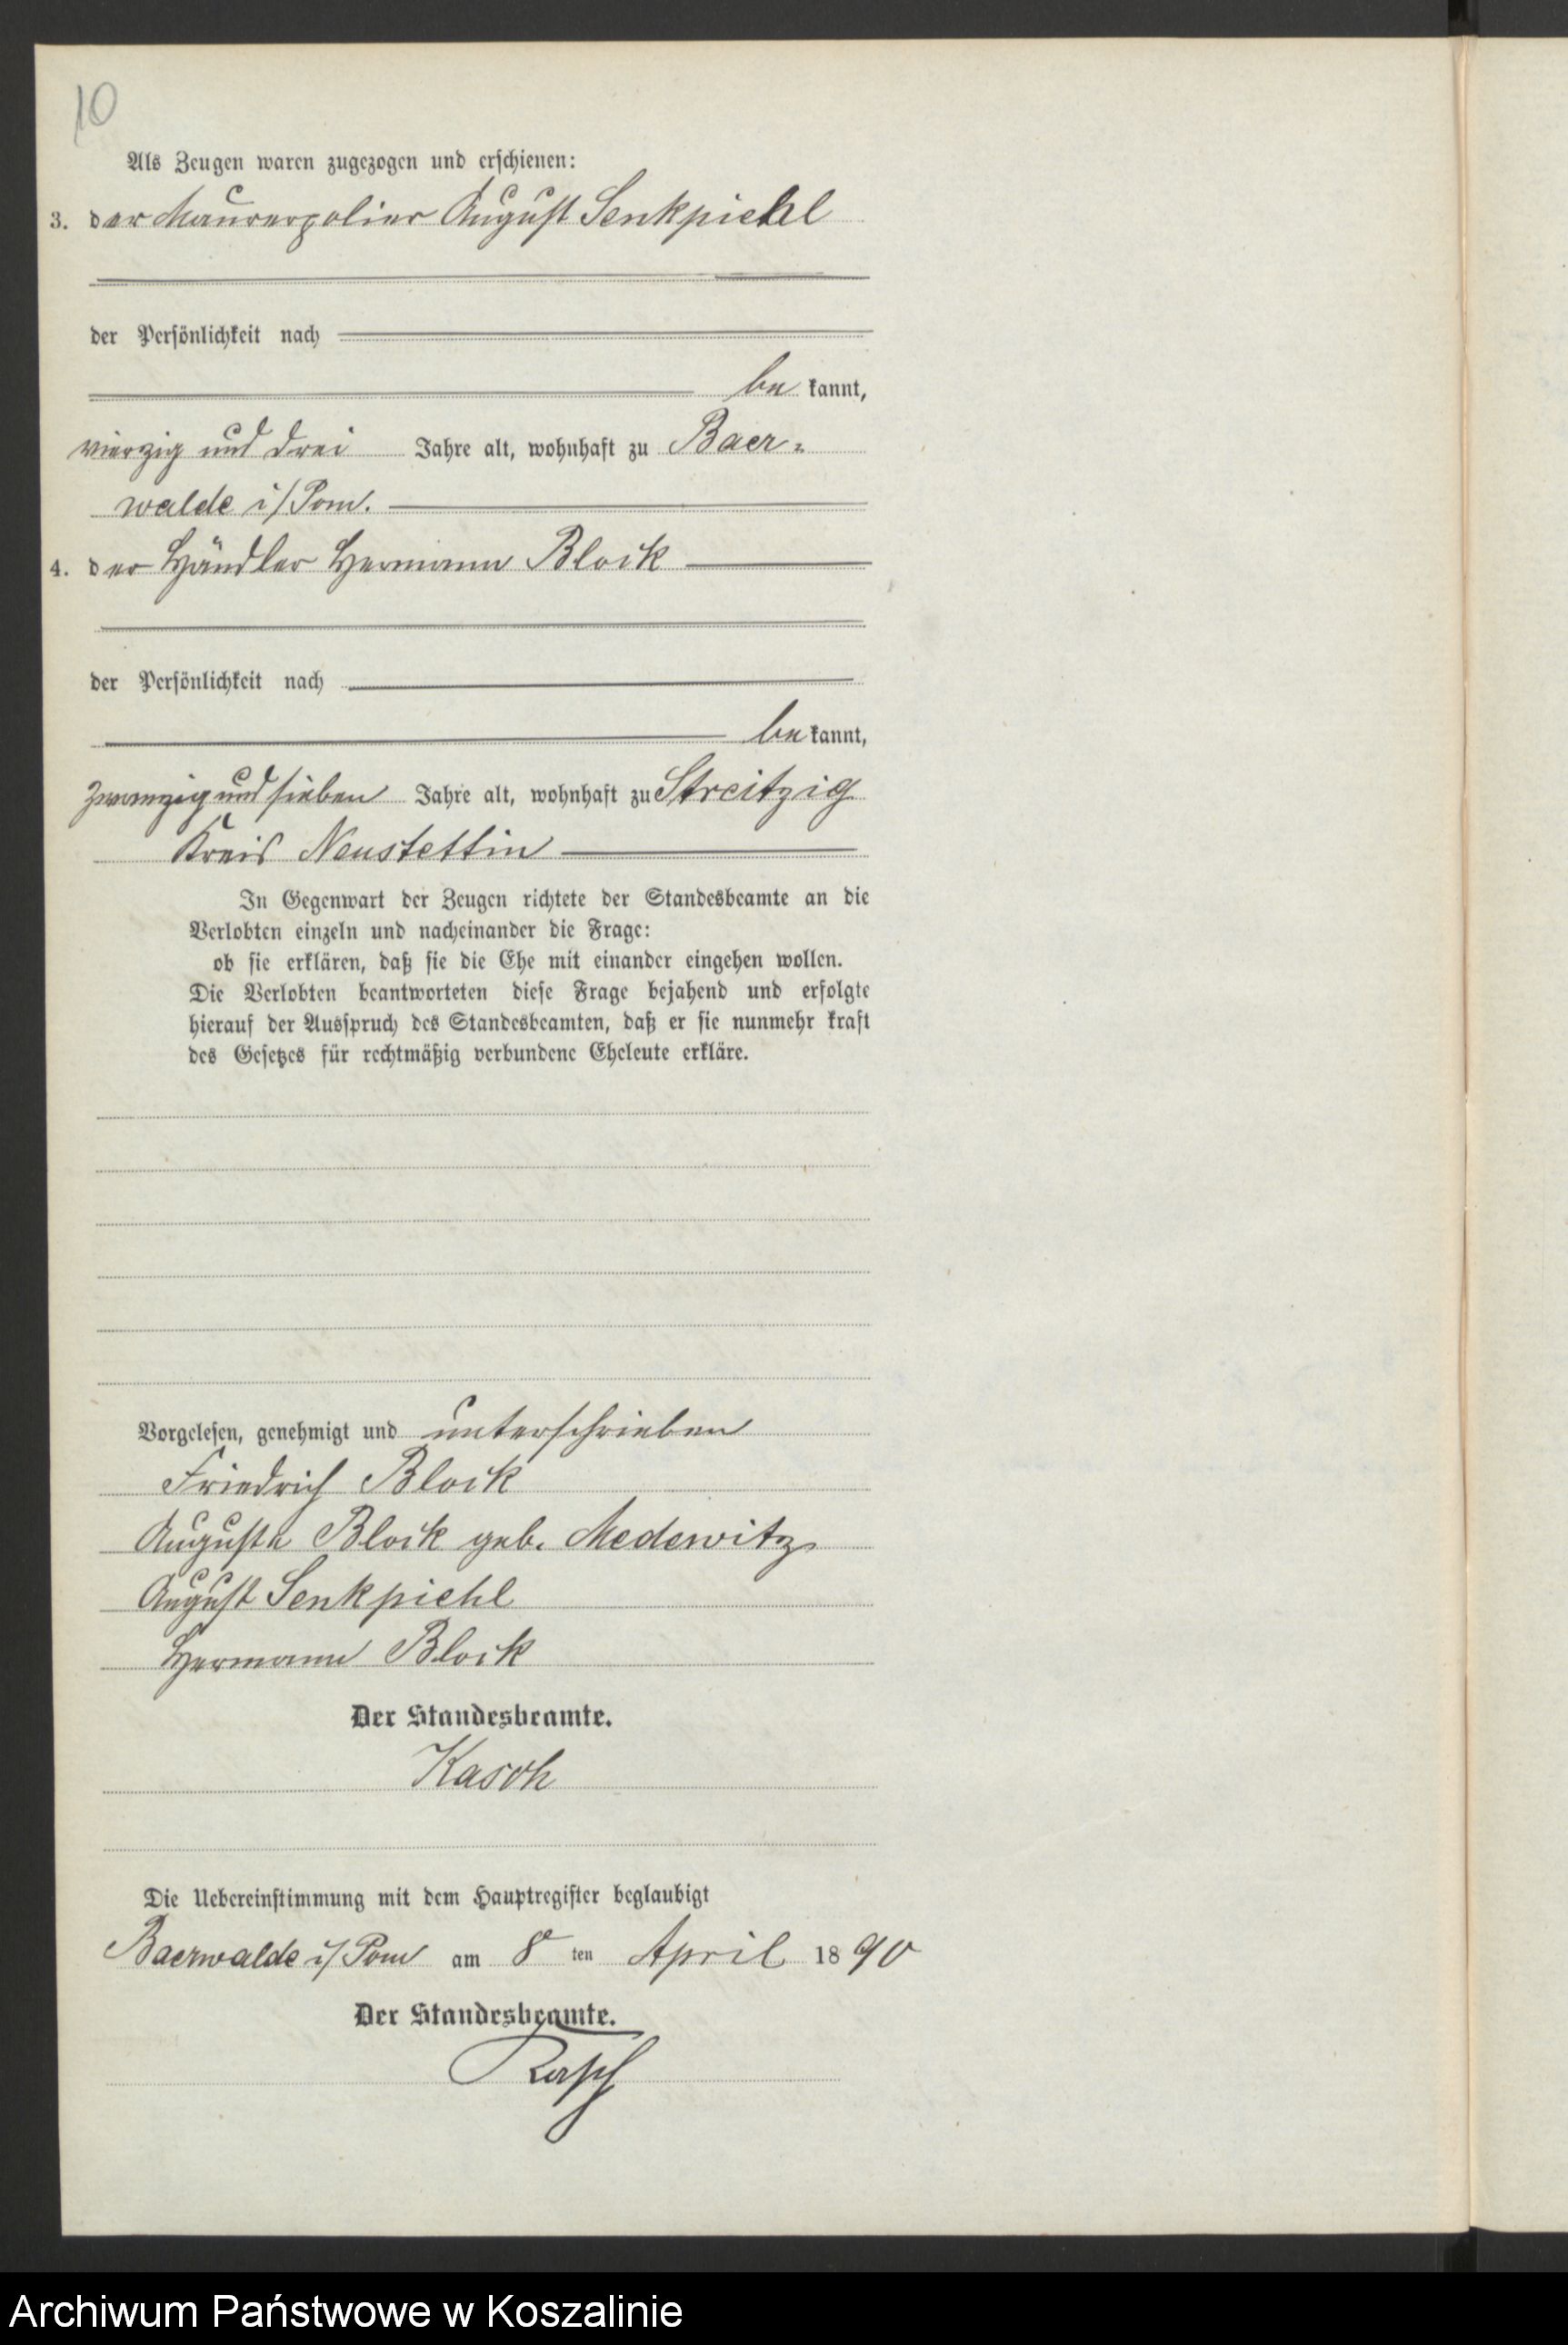 10
Als Zeugen waren zugezogen und erschienen:
3. der Maurerpolier August Senkpiehl
der Persönlichkeit nach
be kannt,
vierzig und drei Jahre alt, wohnhaft zu Baer-
walde i/Pom.
4. der Händler Hermann Block
der Persönlichkeit nach
be kannt,
zwanzig und sieben Jahre alt, wohnhaft zu Streitzig
Kreis Neustettin
In Gegenwart der Zeugen richtete der Standesbeamte an die
Verlobten einzeln und nacheinander die Frage:
ob sie erklären, daß sie die Ehe mit einander eingehen wollen.
Die Verlobten beantworteten diese Frage bejahend und erfolgte
hierauf der Ausspruch des Standesbeamten, daß er sie nunmehr kraft
des Gesetzes für rechtmäßig verbundene Eheleute erkläre.
Vorgelesen, genehmigt und unterschrieben
Friedrich Block
Auguste Block geb. Medewitz
August Senkpiehl
Hermann Block
Der Standesbeamte.
Kasch
Die Uebereinstimmung mit dem Hauptregister beglaubigt
Baerwalde i/Pom am 8ten April 1890
Der Standesbeamte.
Kasch
Archiwum Państwowe w Koszalinie